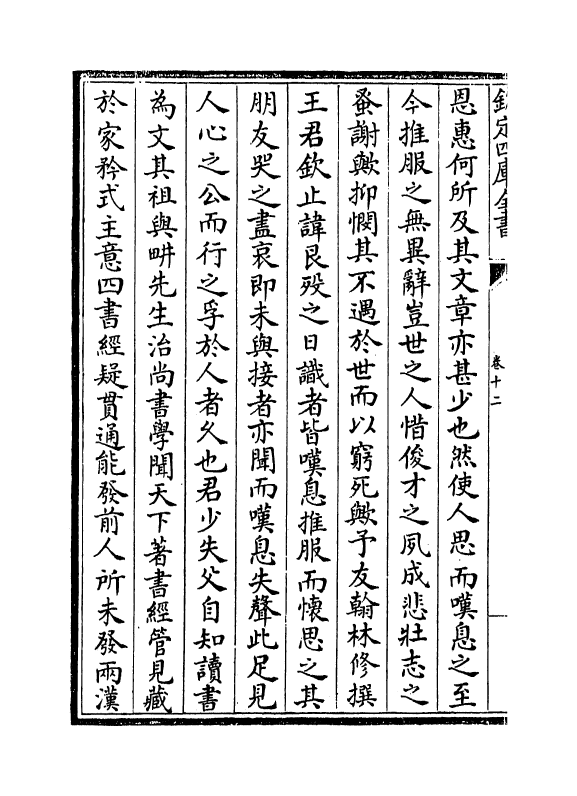 欽定四庫全書
卷十二
恩惠何所及其文章亦甚少也然使人思而嘆息之至
今推服之無異辭豈世之人惜俊才之夙成悲壯志之
蚤謝歟抑憫其不遇於世而以窮死歟予友翰林修撰
王君欽止諱艮歿之日識者皆嘆息推服而懷思之其
朋友哭之盡哀即未與接者亦聞而嘆息失聲此足見
人心之公而行之孚於人者久也君少失父自知讀書
為文其祖與畊先生治尚書學聞天下著書經管見藏
於家矜式主意四書經疑貫通能發前人所未發兩漢